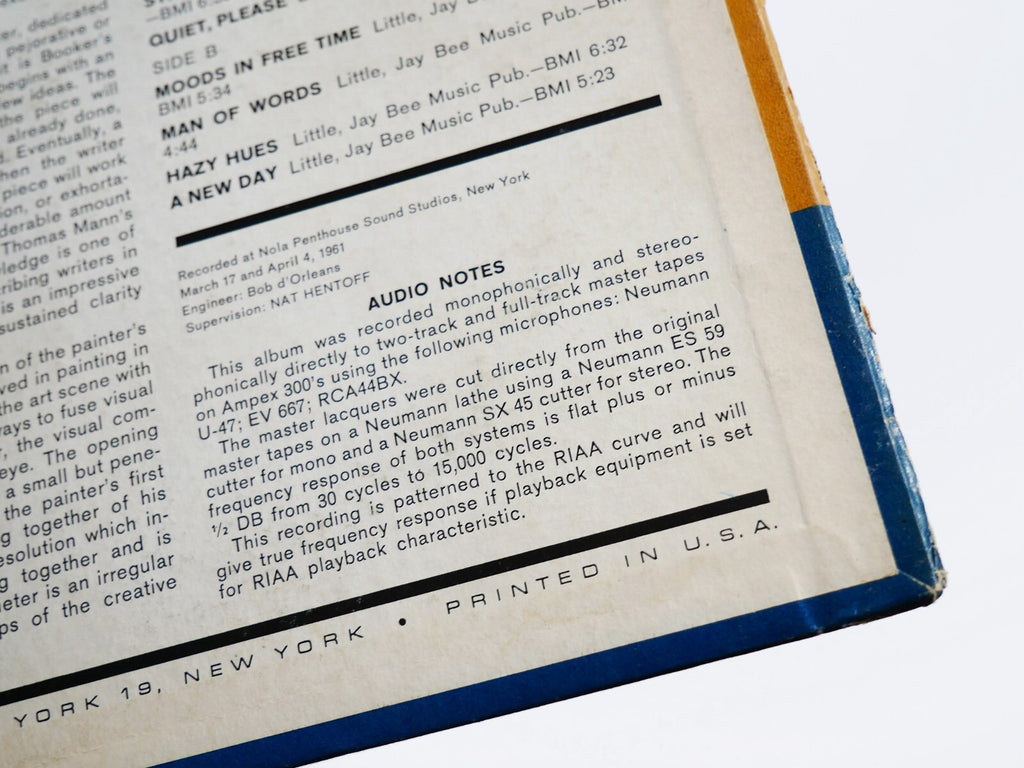 er, dedicated
pejorative or
it is Booker's
begins with an
few ideas. The
the piece will
already done,
d. Eventually, a
hen the writer
piece will work
ion, or exhorta-
derable amount
Thomas Mann's
ledge is one of
ribing writers in
is an impressive
sustained clarity
n of the painter's
ved in painting in
the art scene with
ways to fuse visual
, the visual com-
eye. The opening
a small but pene-
the painter's first
g together of his
esolution which in-
g together and is
eter is an irregular
ps of the creative
—BMI 6:
QUIET, PLEASE
SIDE B
MOODS IN FREE TIME Little, Jay Bee Music Pub.—
BMI 5:34
MAN OF WORDS Little, Jay Bee Music Pub.—BMI
4:44
HAZY HUES Little, Jay Bee Music Pub.—BMI 6:32
A NEW DAY Little, Jay Bee Music Pub.—BMI 5:23
Recorded at Nola Penthouse Sound Studios, New York
March 17 and April 4, 1961
Engineer: Bob d'Orleans
Supervision: NAT HENTOFF
AUDIO NOTES
This album was recorded monophonically and stereo-
phonically directly to two-track and full-track master tapes
on Ampex 300's using the following microphones: Neumann
U-47; EV 667; RCA44BX.
The master lacquers were cut directly from the original
master tapes on a Neumann lathe using a Neumann ES 59
cutter for mono and a Neumann SX 45 cutter for stereo. The
frequency response of both systems is flat plus or minus
½ DB from 30 cycles to 15,000 cycles.
This recording is patterned to the RIAA curve and will
give true frequency response if playback equipment is set
for RIAA playback characteristic.
YORK 19, NEW YORK • PRINTED IN U.S.A.